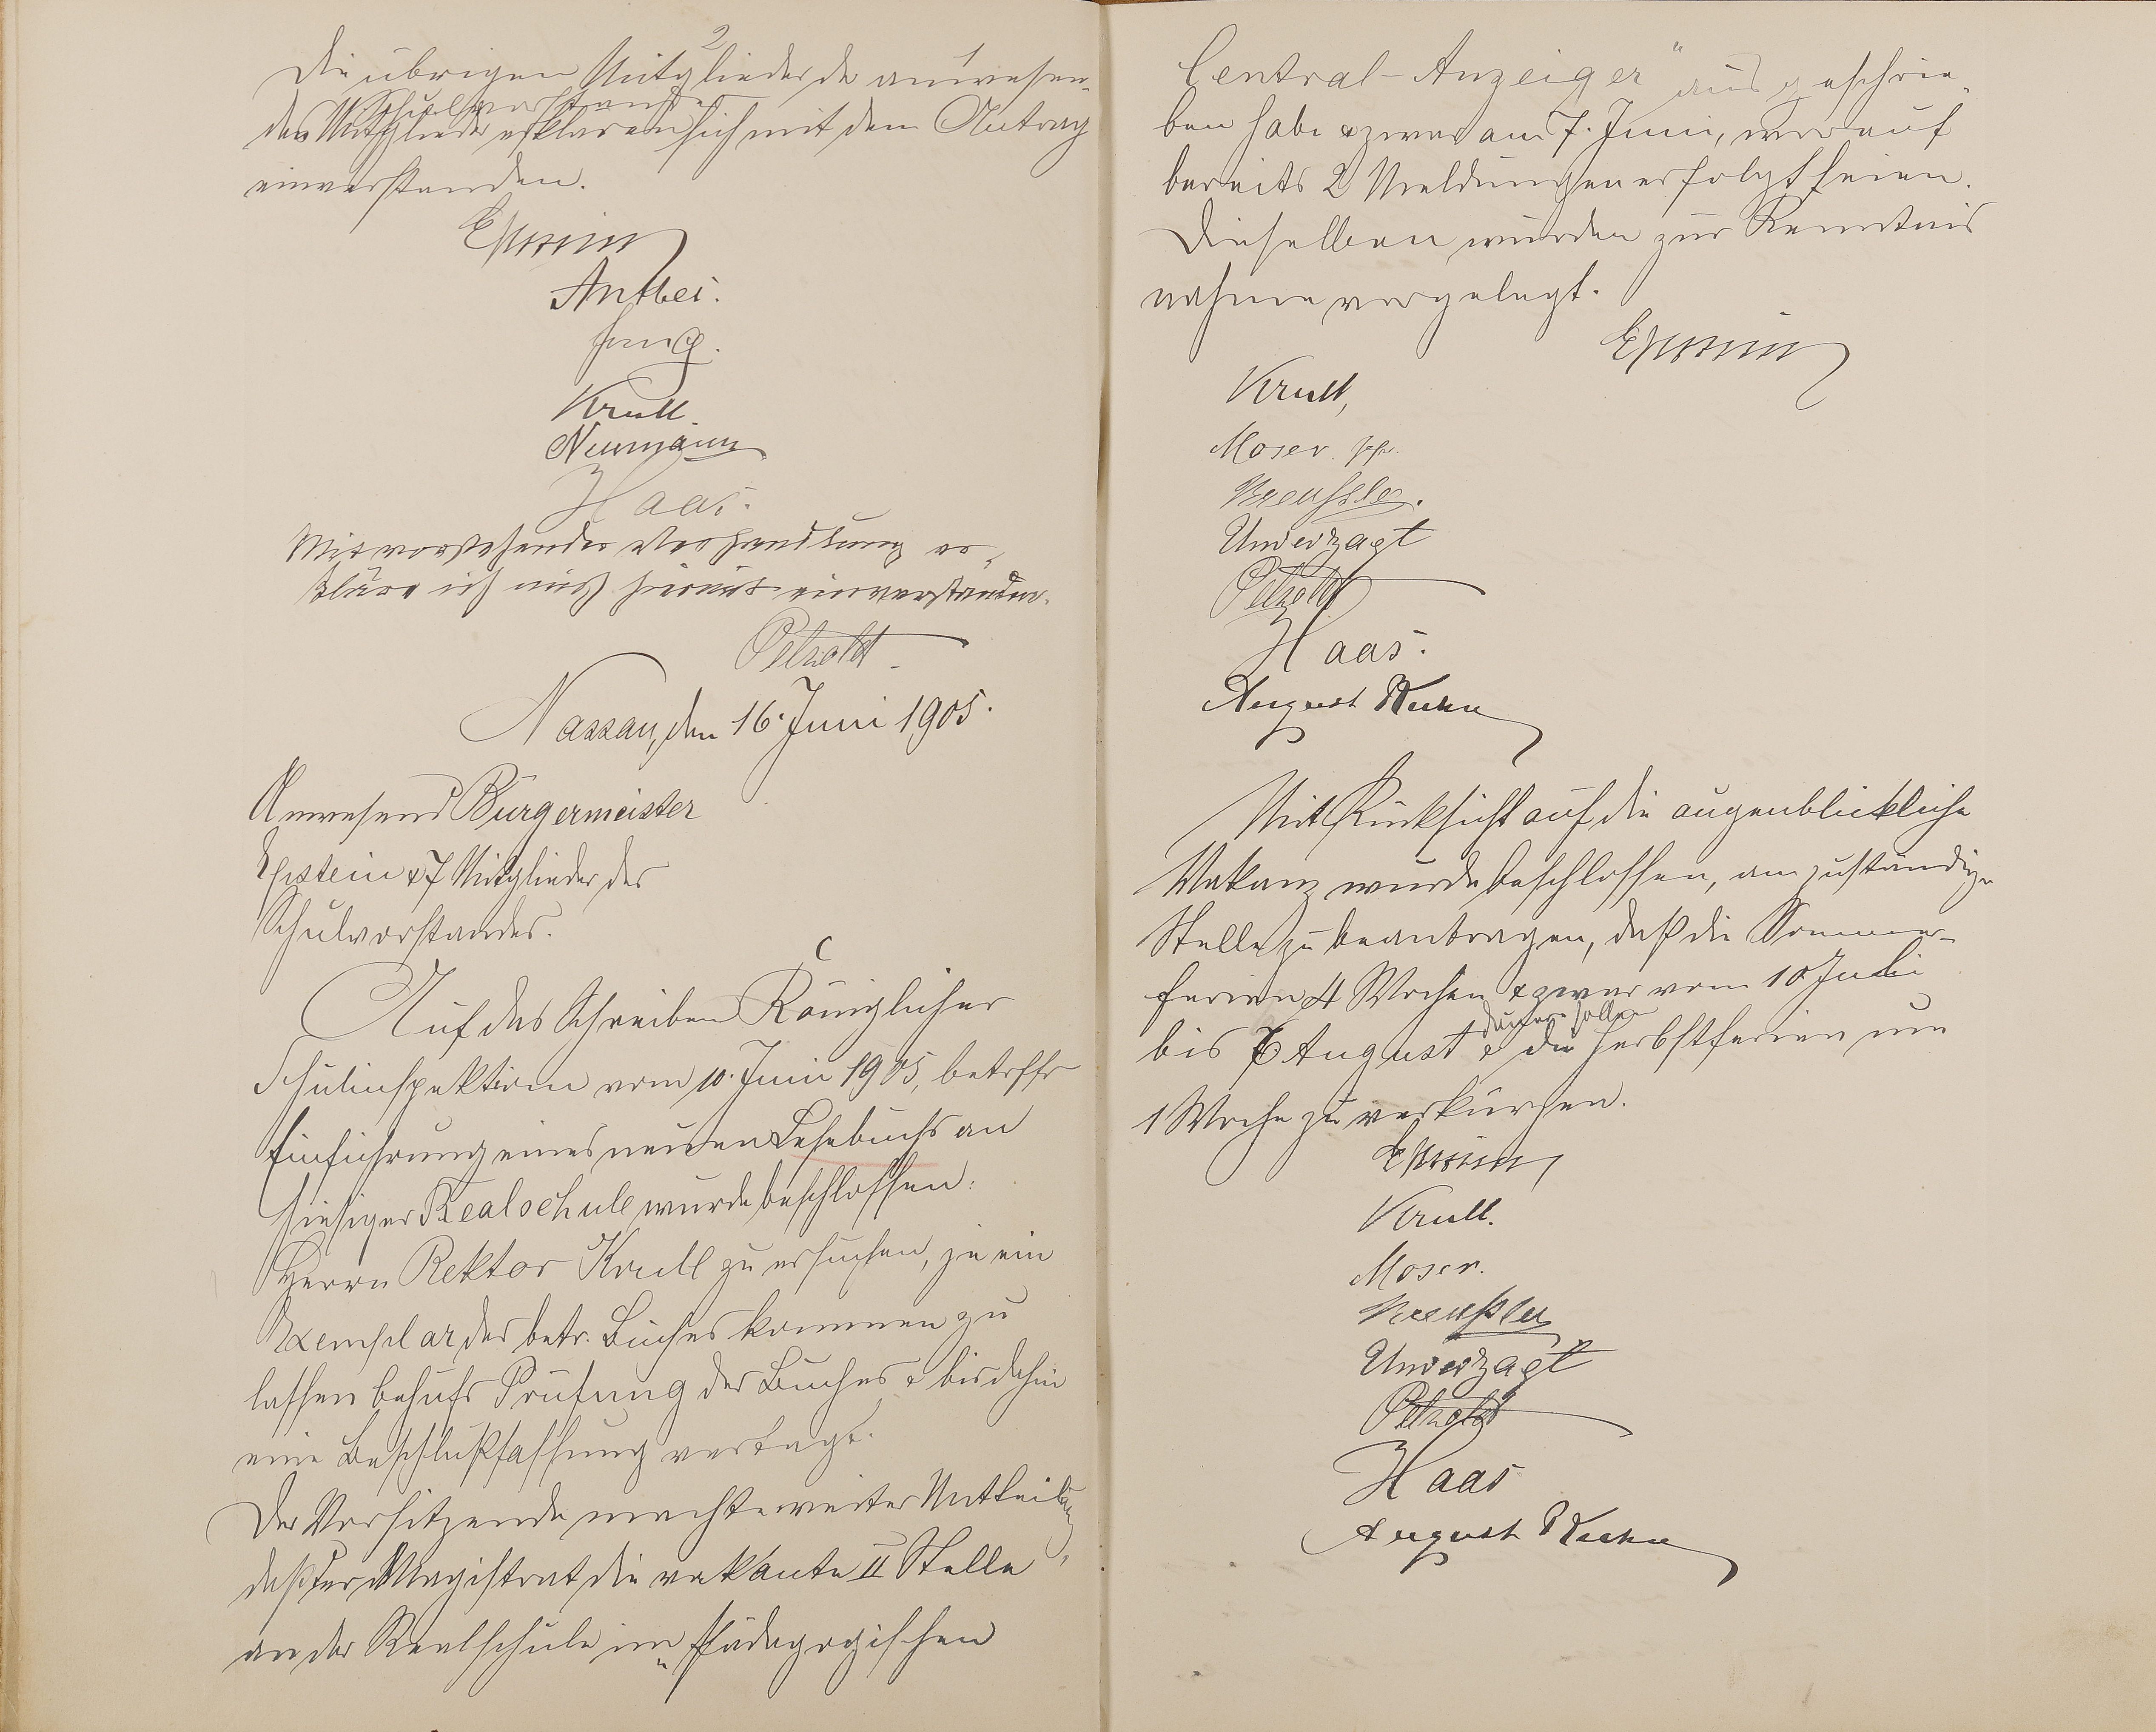 Die übrigen Mitglieder de anwesen-
des Schulvorstandes
den Mitglieder erklären sich mit dem Antrag
einverstanden.
Epstein
Anthes.
Jung.
Krull.
Neumann
Haas.
Mit vorstehender Verhandlung er-
kläre ich mich hiermit einverstanden.
Petzoldt
Nassau, den 16. Juni 1905.
Anwesend Bürgermeister
Epstein & 7 Mitglieder des
Schulvorstandes.
Auf das Schreiben Königlicher
Schulinspektion vom 10. Juni 1905, betreffs
Einführung eines neuen Lesebuchs an
hiesiger Realschule wurde beschlossen:
Herrn Rektor Krull zu ersuchen, je ein
Exemplar des betr. Buches kommen zu
lassen behufs Prüfung des Buches & bis dahin
eine Beschlußfassung vertagt.
Der Vorsitzende machte weiter Mittheilung,
daß der Magistrat die vakante II Stelle
an der Realschule im „Pädagogischen
Central-Anzeiger“ ausgeschrie-
ben habe & zwar am 7. Juni, worauf
bereits 2 Meldungen erfolgt seien.
Dieselben wurden zur Kenntnis
nahme vorgelegt.
Epstein
Krull,
Moser.
Kreußler.
Unverzagt
Petzoldt
Haas.
August Kuhn
Mit Rücksicht auf die augenblickliche
Vakanz wurde beschlossen, am zuständige
Stelle zu beantragen, daß die Sommer-
ferien 4 Wochen & zwar vom 10 Juli
bis 7 August dauern sollen & die Herbstferien um
1 Woche zu verkürzen.
Epstein
Krull.
Moser.
Kreußler
Unverzagt
Petzoldt
Haas
August Kuhn